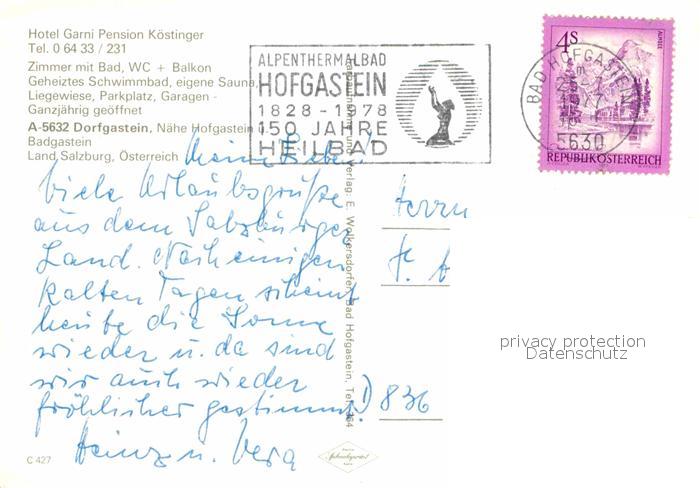 Hotel Garni Pension Köstinger
Tel. 0 64 33 / 231
Zimmer mit Bad, WC + Balkon
Geheiztes Schwimmbad, eigene Sauna,
Liegewiese, Parkplatz, Garagen -
Ganzjährig geöffnet
A-5632 Dorfgastein, Nähe Hofgastein
Badgastein
Land Salzburg, Österreich
ALPENTHERMALBAD
HOFGASTEIN
1828 - 1978
150 JAHRE
HEILBAD
4s
ALMSEE
REPUBLIK ÖSTERREICH
BAD HOFGASTEIN
5630
Meine Lieben!
Viele Urlaubsgrüße
aus dem Salzburger
Land. Nach einigen
kalten Tagen scheint
heute die Sonne
wieder u. da sind
wir auch wieder
fröhlicher gestimmt.
Heinz u. Vera
Verlag: E. Wolkersdorfer, Bad Hofgastein, Tel. 464
Herrn
F. A
D 836
privacy protection
Datenschutz
C 427